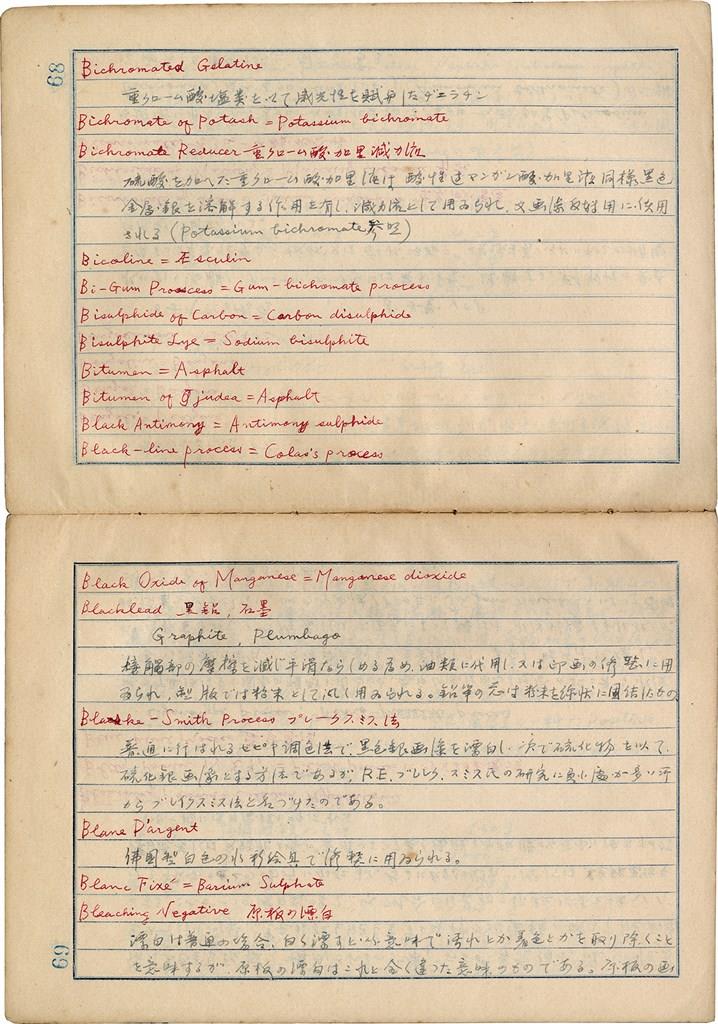 68
Bichromated Gelatine
重クローム酸塩類を以て感光性を賦与したゼラチン
Bichromate of Potash = Potassium bichromate
Bichromate Reducer 重クローム酸加里減力液
硫酸を加へた重クローム酸加里液は酸性過マンガン酸加里液同様黒色
金属銀を溶解する作用を有し、減力液として用ゐられ、又画像反転用に供用
される (Potassium bichromate 参照)
Bicoline = Æsculin
Bi-Gum Process = Gum-bichomate process
Bisulphide of Carbon = Carbon disulphide
Bisulphite Lye = Sodium bisulphite
Bitumen = Asphalt
Bitumen of judea = Asphalt
Black Antimony = Antimony sulphide
Black-line process = Colas's process
Black Oxide of Manganese = Manganese dioxide
Blacklead 黒鉛, 石墨
Graphite, Plumbago
接触部の摩擦を減じ平滑ならしめる為め、油類に代用し、又は印画の修整に用
ゐられ、製版では粉末として広く用ゐられる。鉛筆の芯は粉末を線状に固結したもの
Blake-Smith Process ブレークスミス法
普通に行はれるセピヤ調色法で、黒色銀画像を漂白し、次で硫化物を以て、
硫化銀画像とする方法であるが、R.E. ブレーク, スミス氏の研究に負ふ處が多い所
からブレイクスミス法と名づけたのである。
Blanc D'argent
佛国製白色の水彩絵具で修整に用ゐられる。
Blanc Fixé = Barium Sulphate
Bleaching Negative 原板の漂白
漂白は普通の場合、白く漂すといふ意味で汚れとか着色とかを取り除くこと
を意味するが、原板の漂白はこれと全く違った意味のものである。原板の画
69